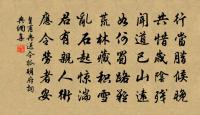 行當臘候晚
共惜歲陰殘
聞道巴山遠
如何蜀路難
荒林藏積雪
亂石起驚湍
君有親人術
應令勞者安
皇甫冉送令狐明府詞
典網集